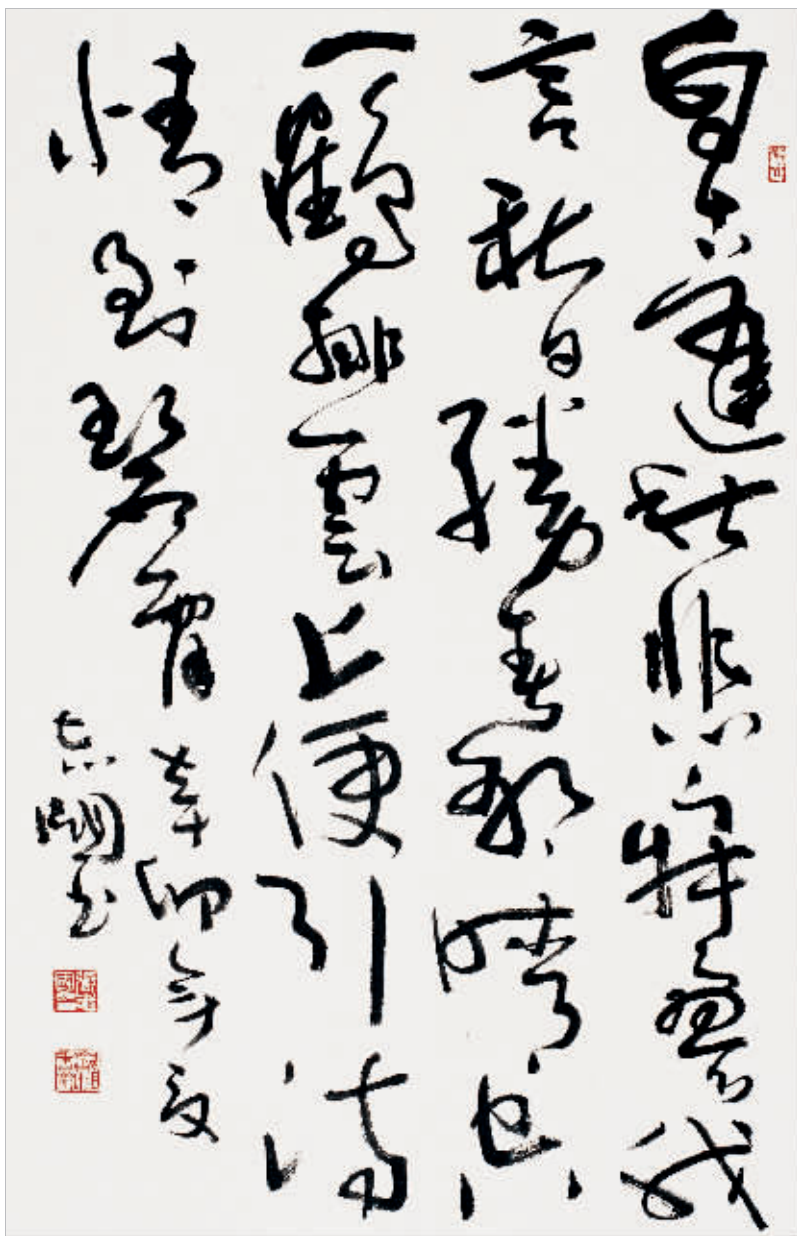 自古逢秋悲寂寥我
言秋日勝春朝晴空
一鶴排雲上便引詩
情到碧霄
辛卯年夏
志書